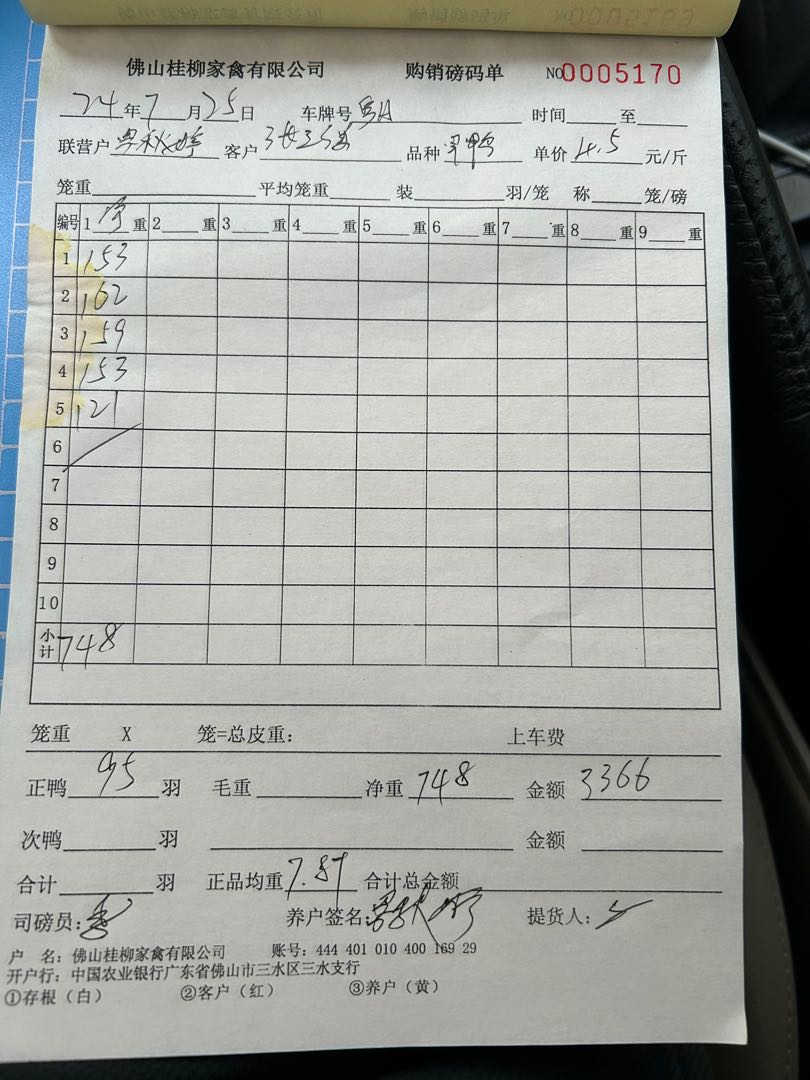 佛山桂柳家禽有限公司 购销磅码单 NO0005170
24年7月25日 车牌号 粤A 时间 至
联营户 客户 品种 单价 4.5 元/斤
笼重 平均笼重 装 羽/笼 称 笼/磅
编号 1 净 重 2 重 3 重 4 重 5 重 6 重 7 重 8 重 9 重
1 153
2 162
3 159
4 153
5 121
6
7
8
9
10
小计 748
笼重 X 笼=总皮重: 上车费
正鸭 95 羽 毛重 净重 748 金额 3366
次鸭 羽 金额
合计 羽 正品均重 7.87 合计总金额
司磅员: 养户签名: 提货人:
户 名: 佛山桂柳家禽有限公司 账号: 444 401 010 400 169 29
开户行: 中国农业银行广东省佛山市三水区三水支行
①存根(白) ②客户(红) ③养户(黄)